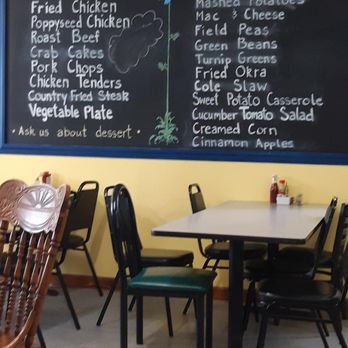 Fried Chicken
Poppyseed Chicken
Roast Beef
Crab Cakes
Pork Chops
Chicken Tenders
Country Fried Steak
Vegetable Plate
• Ask us about dessert •
Mashed Potatoes
Mac & Cheese
Field Peas
Green Beans
Turnip Greens
Fried Okra
Cole Slaw
Sweet Potato Casserole
Cucumber Tomato Salad
Creamed Corn
Cinnamon Apples